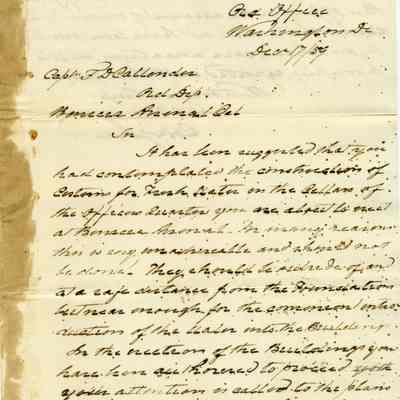 Ord. Office
Washington Dc
Decr 17/59
Capt. F D Callender
Ord Dep.
Benicia Arsenal Cal
Sir
It has been suggested that you
had contemplated the construction of
Cistern for Fresh Water in the Cellars of
the Officers Quarters you are about to erect
at Benicia Arsenal. For many reasons
this is very unadvisable and should not
be done. They should be outside of, and
at a safe distance from the Foundation
but near enough for the convenient intro
duction of the water into the Building.
In the erection of the Buildings you
have been authorized to proceed with
your attention is called to the plans